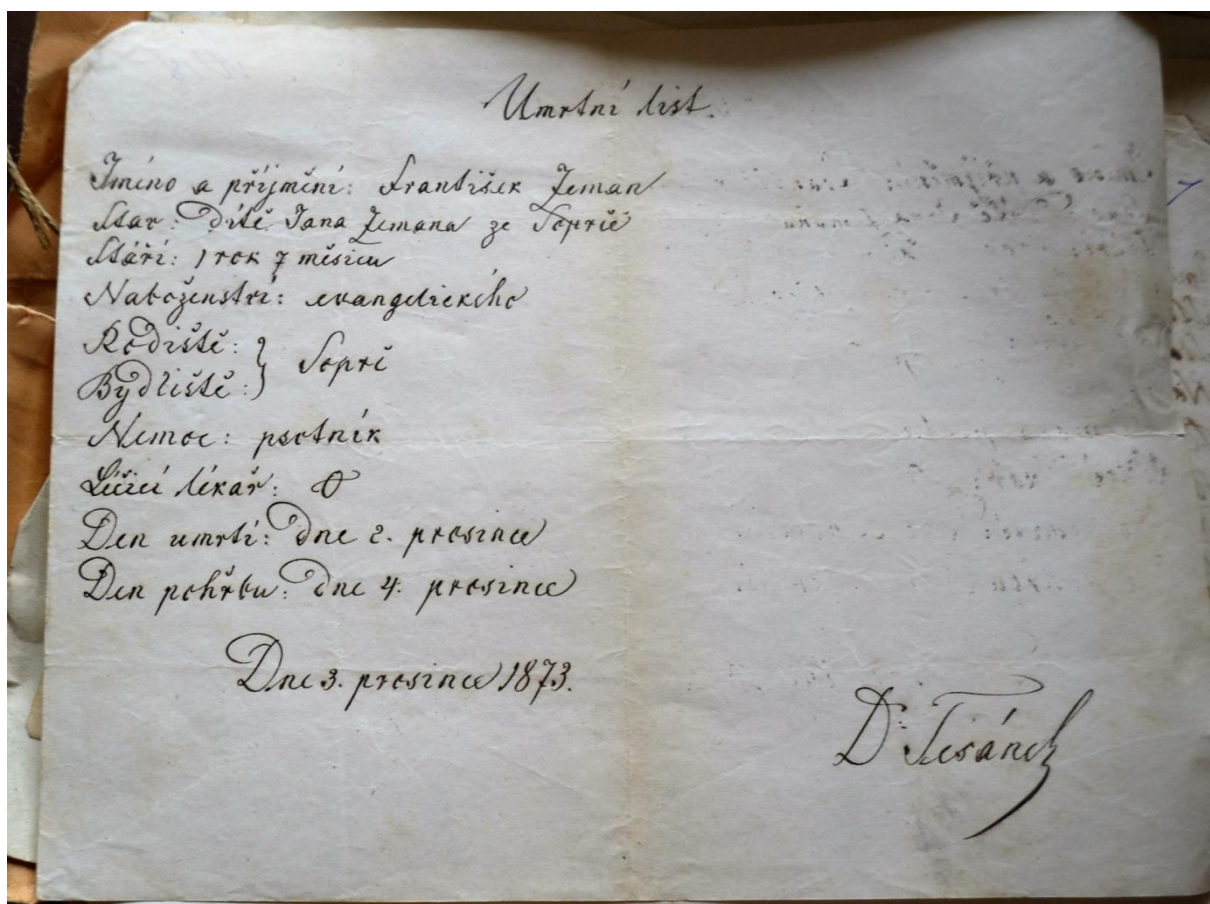 Umrtní list.
Jméno a příjmění: František Zeman
Stav: Dítě Jana Zemana ze Sopřeč
Stáří: 1 rok 7 měsíců
Naboženství: evangelického
Rodiště: }
Bydliště: } Sopřč
Nemoc: psotník
Léčící lékař: 0
Den umrtí: Dne 2. prosince
Den pohřbu: Dne 4. prosince
Dne 3. prosince 1873.
Dr. Tesánek